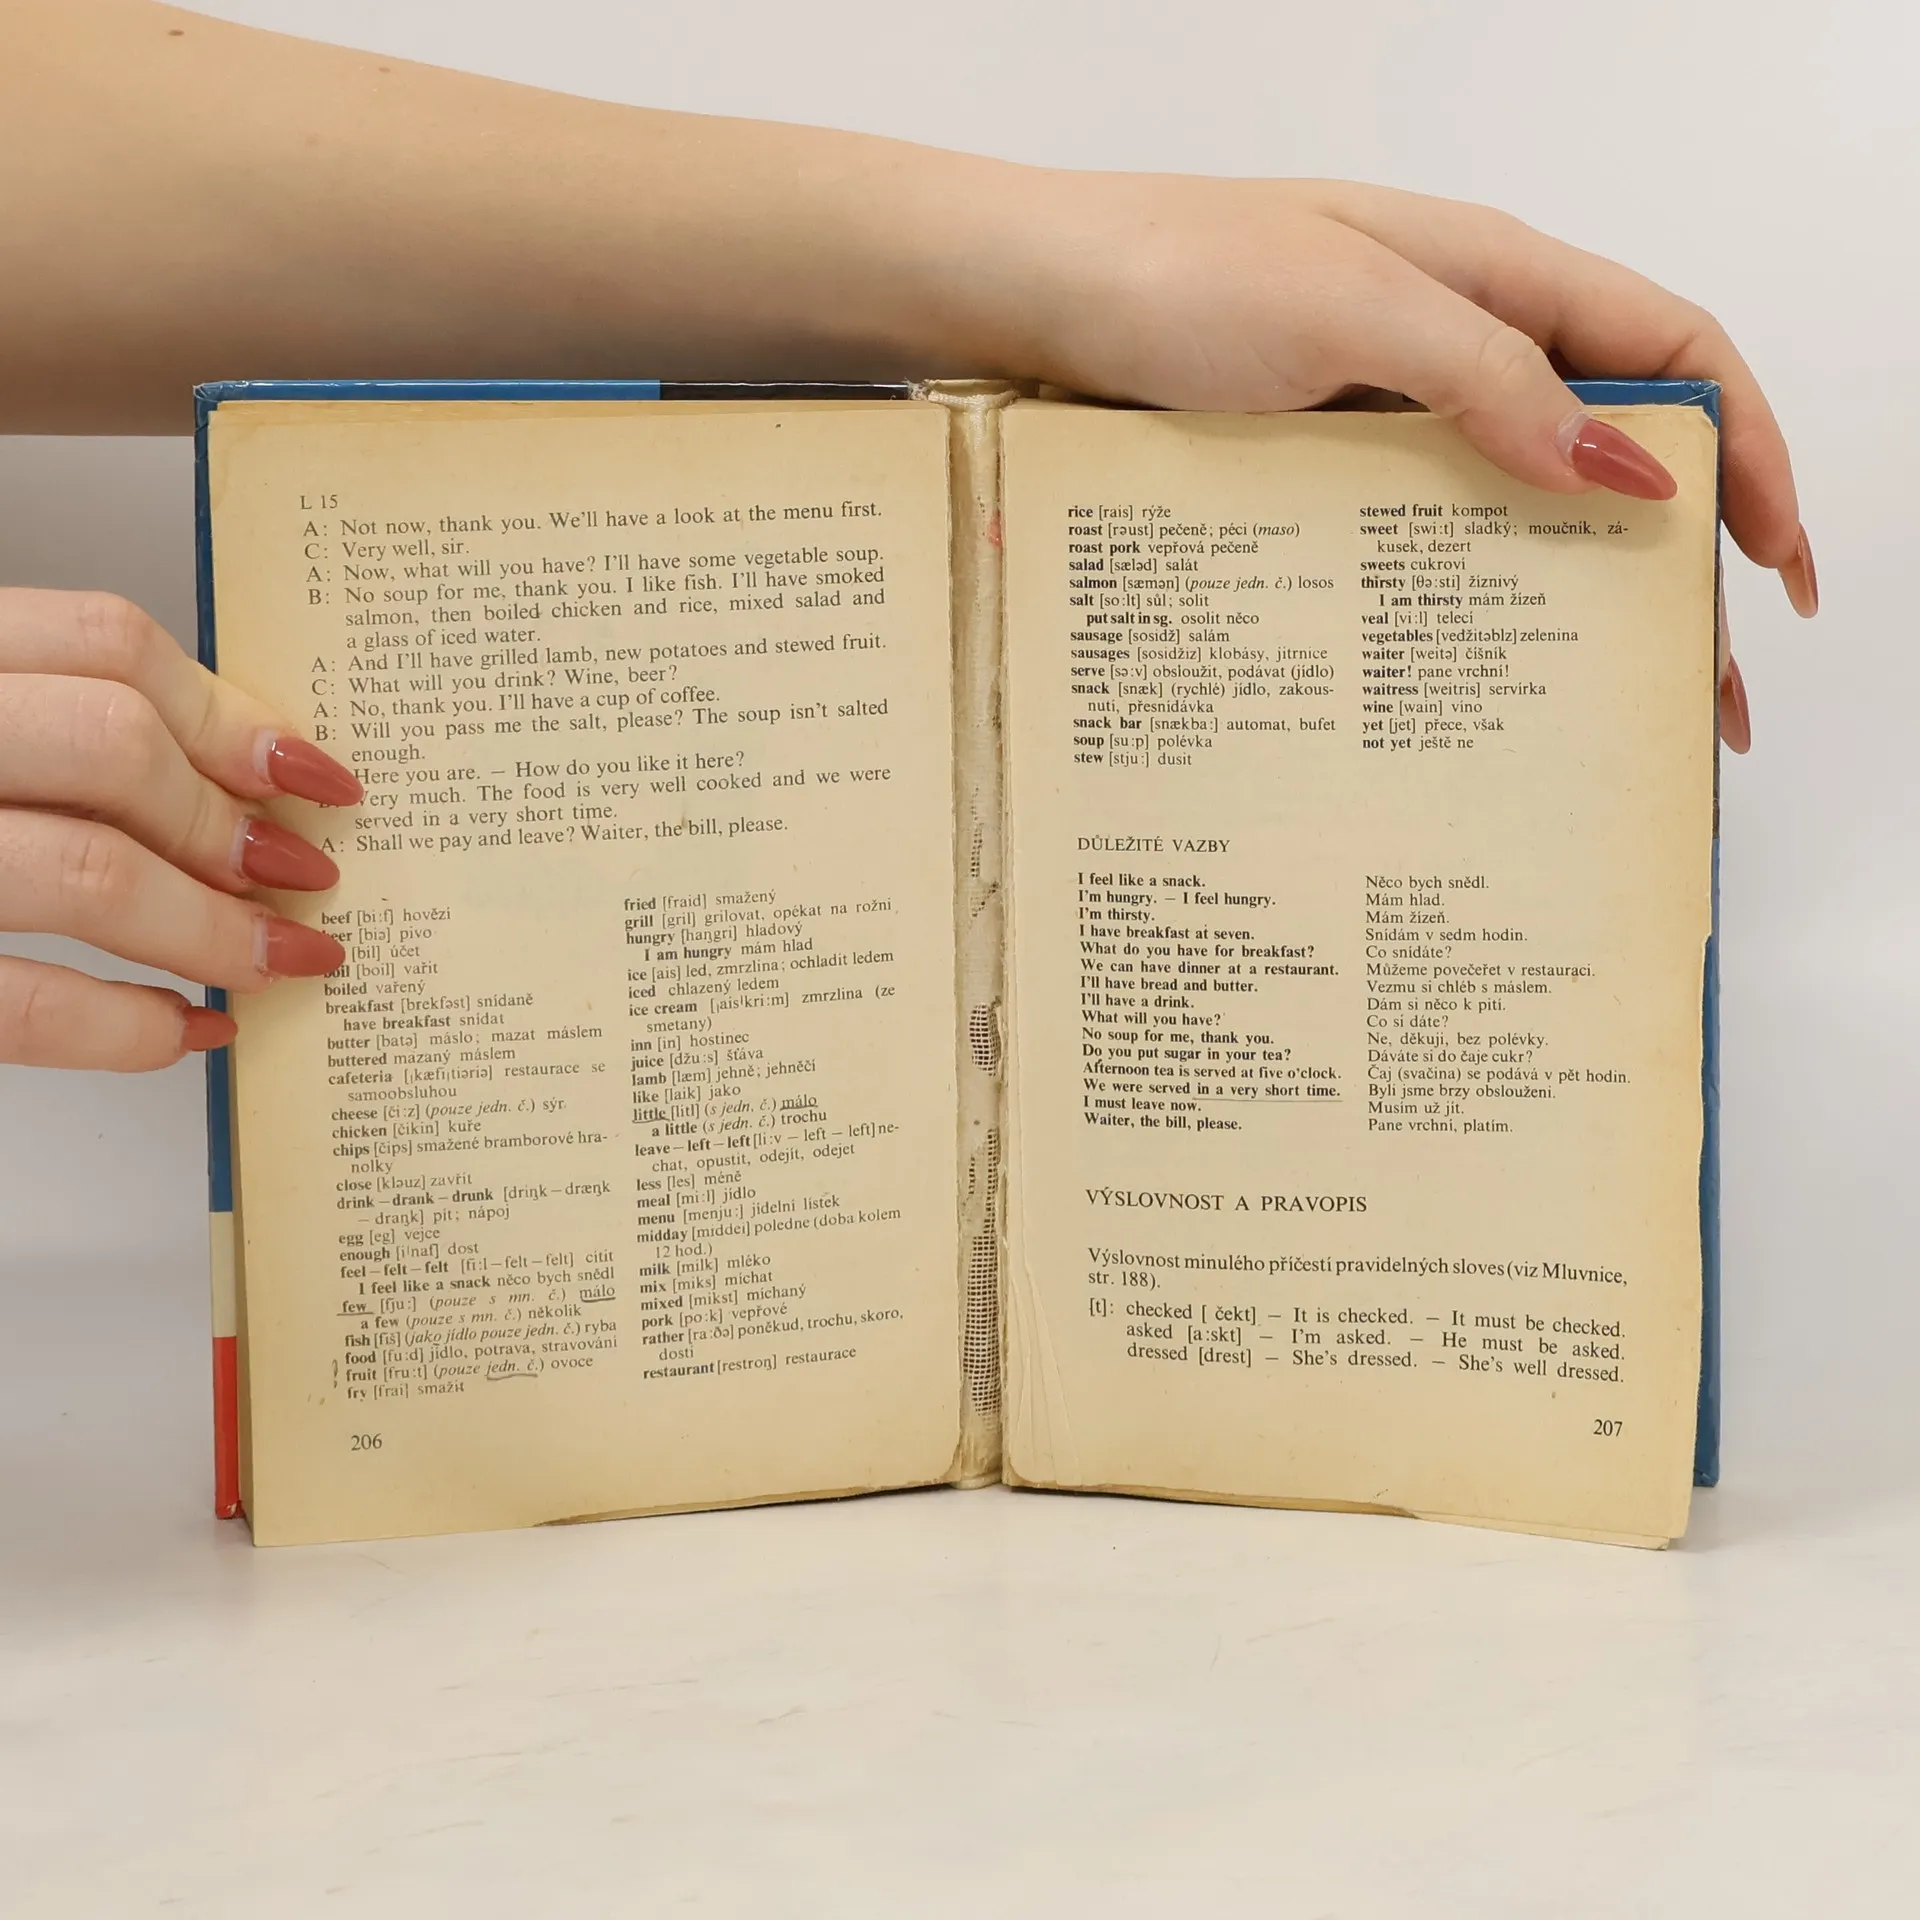 L 15
A: Not now, thank you. We'll have a look at the menu first.
C: Very well, sir.
A: Now, what will you have? I'll have some vegetable soup.
B: No soup for me, thank you. I like fish. I'll have smoked
salmon, then boiled chicken and rice, mixed salad and
a glass of iced water.
A: And I'll have grilled lamb, new potatoes and stewed fruit.
C: What will you drink? Wine, beer?
A: No, thank you. I'll have a cup of coffee.
B: Will you pass me the salt, please? The soup isn't salted
enough.
Here you are. — How do you like it here?
Very much. The food is very well cooked and we were
served in a very short time.
A: Shall we pay and leave? Waiter, the bill, please.
beef [bi:f] hovězí
beer [biə] pivo
[bil] účet
boil [boil] vařit
boiled vařený
breakfast [brekfəst] snídaně
have breakfast snídat
butter [batə] máslo; mazat máslem
buttered mazaný máslem
cafeteria [ˌkæfiˌtiəriə] restaurace se
samoobsluhou
cheese [či:z] (pouze jedn. č.) sýr
chicken [čikin] kuře
chips [čips] smažené bramborové hra-
nolky
close [kləuz] zavřít
drink – drank – drunk [driŋk – dræŋk
– draŋk] pít; nápoj
egg [eg] vejce
enough [iˈnaf] dost
feel – felt – felt [fi:l – felt – felt] cítit
I feel like a snack něco bych snědl
few [fju:] (pouze s mn. č.) málo
a few (pouze s mn. č.) několik
fish [fiš] (jako jídlo pouze jedn. č.) ryba
food [fu:d] jídlo, potrava, stravování
fruit [fru:t] (pouze jedn. č.) ovoce
fry [frai] smažit
fried [fraid] smažený
grill [gril] grilovat, opékat na rožni
hungry [haŋgri] hladový
I am hungry mám hlad
ice [ais] led, zmrzlina; ochladit ledem
iced chlazený ledem
ice cream [ˌaisˈkri:m] zmrzlina (ze
smetany)
inn [in] hostinec
juice [džu:s] šťáva
lamb [læm] jehně; jehněčí
like [laik] jako
little [litl] (s jedn. č.) málo
a little (s jedn. č.) trochu
leave – left – left [li:v – left – left] ne-
chat, opustit, odejít, odejet
less [les] méně
meal [mi:l] jídlo
menu [menju:] jídelní lístek
midday [middei] poledne (doba kolem
12 hod.)
milk [milk] mléko
mix [miks] míchat
mixed [mikst] míchaný
pork [po:k] vepřové
rather [ra:ðə] poněkud, trochu, skoro,
dosti
restaurant [restroŋ] restaurace
206
rice [rais] rýže
roast [rəust] pečeně; péci (maso)
roast pork vepřová pečeně
salad [sæləd] salát
salmon [sæmən] (pouze jedn. č.) losos
salt [so:lt] sůl; solit
put salt in sg. osolit něco
sausage [sosidž] salám
sausages [sosidžiz] klobásy, jitrnice
serve [sə:v] obsloužit, podávat (jídlo)
snack [snæk] (rychlé) jídlo, zakous-
nutí, přesnídávka
snack bar [snækba:] automat, bufet
soup [su:p] polévka
stew [stju:] dusit
stewed fruit kompot
sweet [swi:t] sladký; moučník, zá-
kusek, dezert
sweets cukroví
thirsty [θə:sti] žíznivý
I am thirsty mám žízeň
veal [vi:l] telecí
vegetables [vedžitəblz] zelenina
waiter [weitə] číšník
waiter! pane vrchní!
waitress [weitris] servírka
wine [wain] víno
yet [jet] přece, však
not yet ještě ne
DŮLEŽITÉ VAZBY
I feel like a snack. Něco bych snědl.
I'm hungry. – I feel hungry. Mám hlad.
I'm thirsty. Mám žízeň.
I have breakfast at seven. Snídám v sedm hodin.
What do you have for breakfast? Co snídáte?
We can have dinner at a restaurant. Můžeme povečeřet v restauraci.
I'll have bread and butter. Vezmu si chléb s máslem.
I'll have a drink. Dám si něco k pití.
What will you have? Co si dáte?
No soup for me, thank you. Ne, děkuji, bez polévky.
Do you put sugar in your tea? Dáváte si do čaje cukr?
Afternoon tea is served at five o'clock. Čaj (svačina) se podává v pět hodin.
We were served in a very short time. Byli jsme brzy obslouženi.
I must leave now. Musím už jít.
Waiter, the bill, please. Pane vrchní, platím.
VÝSLOVNOST A PRAVOPIS
Výslovnost minulého příčestí pravidelných sloves (viz Mluvnice,
str. 188).
[t]: checked [ čekt] – It is checked. – It must be checked.
asked [a:skt] – I'm asked. – He must be asked.
dressed [drest] – She's dressed. – She's well dressed.
207